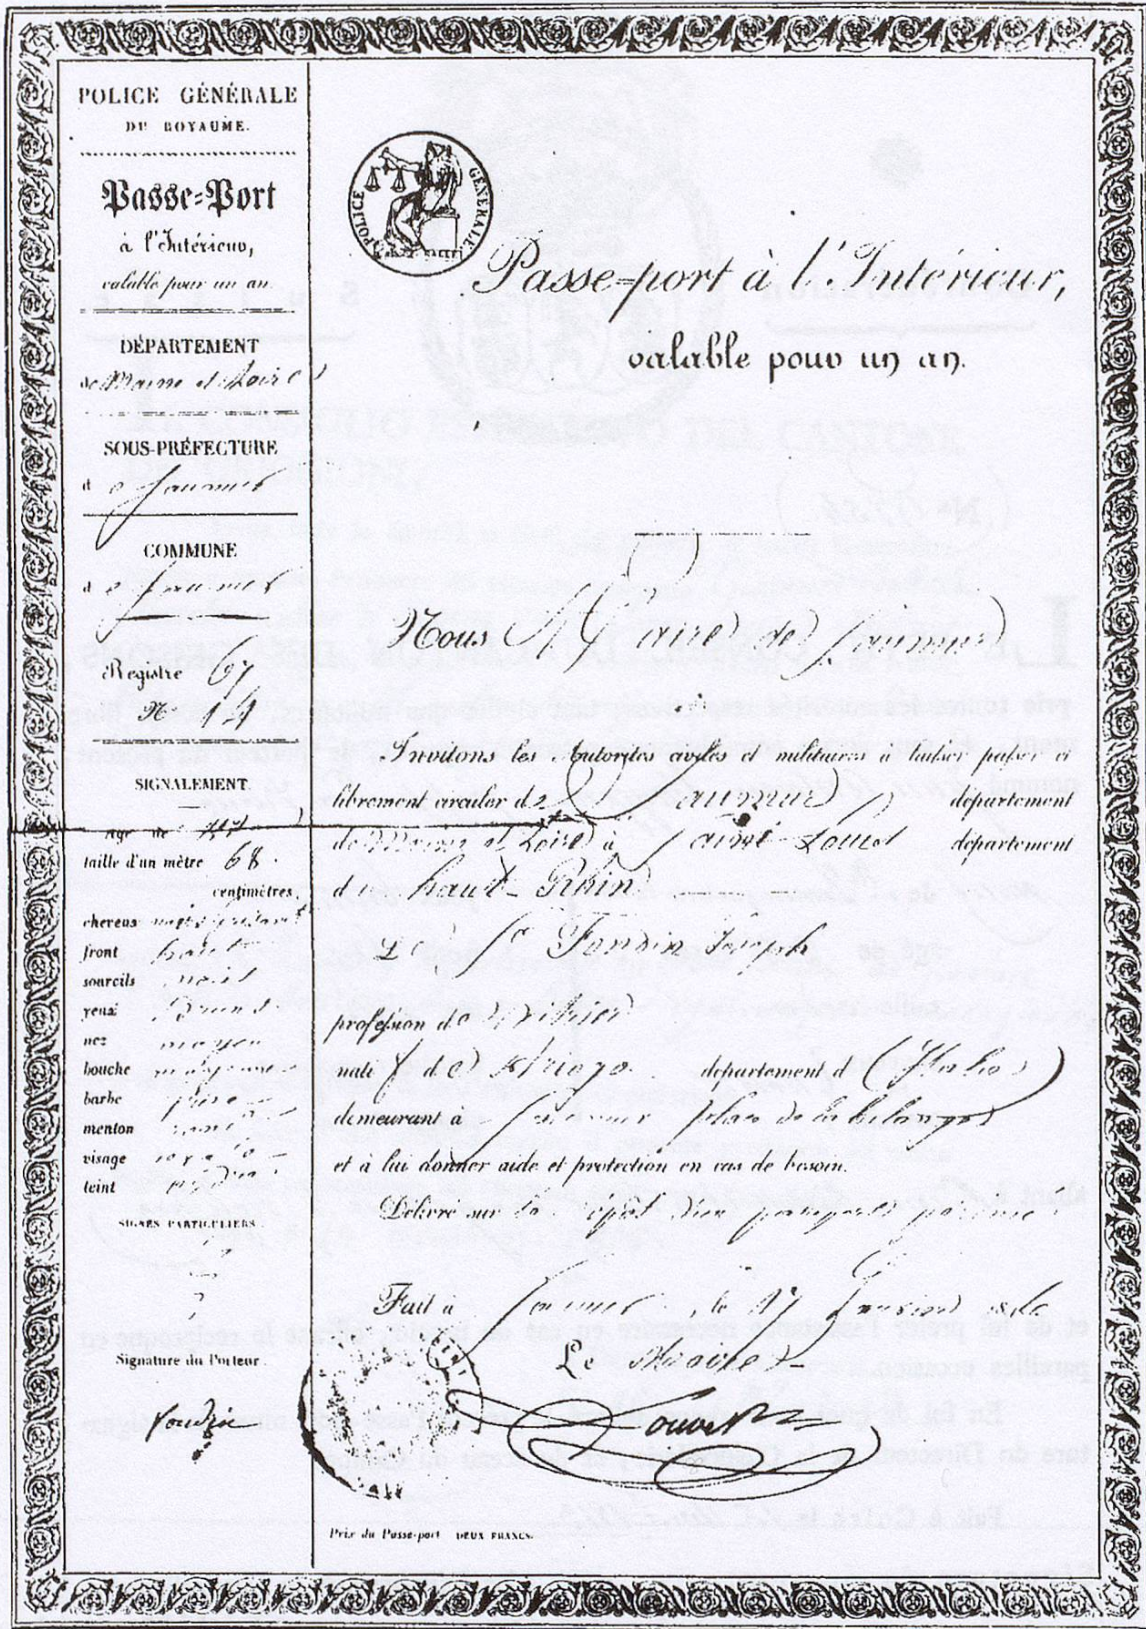 POLICE GÉNÉRALE
DU ROYAUME.
Passe=Port
à l'Intérieur,
valable pour un an.
DÉPARTEMENT
de Maine et Loire
SOUS-PRÉFECTURE
d e Saumur
COMMUNE
d e Saumur
Registre 67
N°
SIGNALEMENT.
age de
taille d'un mètre 68
centimètres
cheveux noirs
front haut
sourcils noirs
yeux bruns
nez moyen
bouche moyenne
barbe grise
menton rond
visage
teint
SIGNES PARTICULIERS.
Signature du Porteur.
Fandin
POLICE GÉNÉRALE
Passe-port à l'Intérieur,
valable pour un an.
Nous Maire de Saumur
Invitons les Autorités civiles et militaires à laisser passer et
librement circuler de Saumur département
de Maine et Loire à Saint-Louis département
d haut-Rhin
Le Sr Fandin Joseph
profession de
natif de département d
demeurant à Saumur place de la
et à lui donner aide et protection en cas de besoin.
Délivré sur
Fait à Saumur le 17
Le Maire
Louvet
Prix du Passe-port DEUX FRANCS.